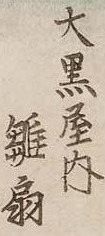 大黒屋内
雛扇